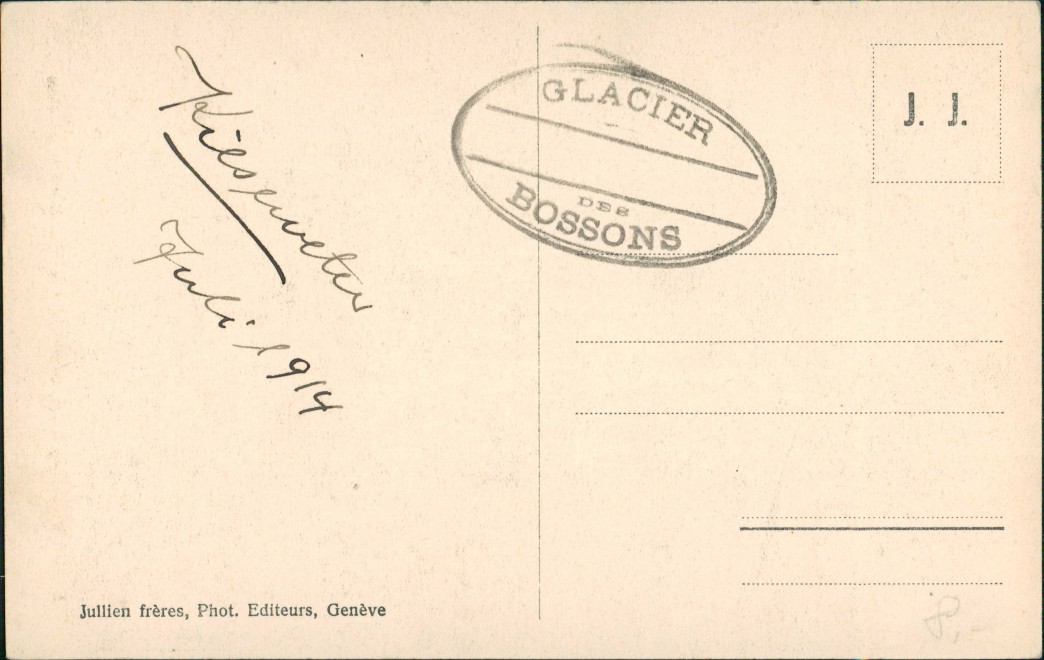 Kiesewetter
Juli 1914
GLACIER
DES
BOSSONS
J. J.
Jullien frères, Phot. Editeurs, Genève
8,-